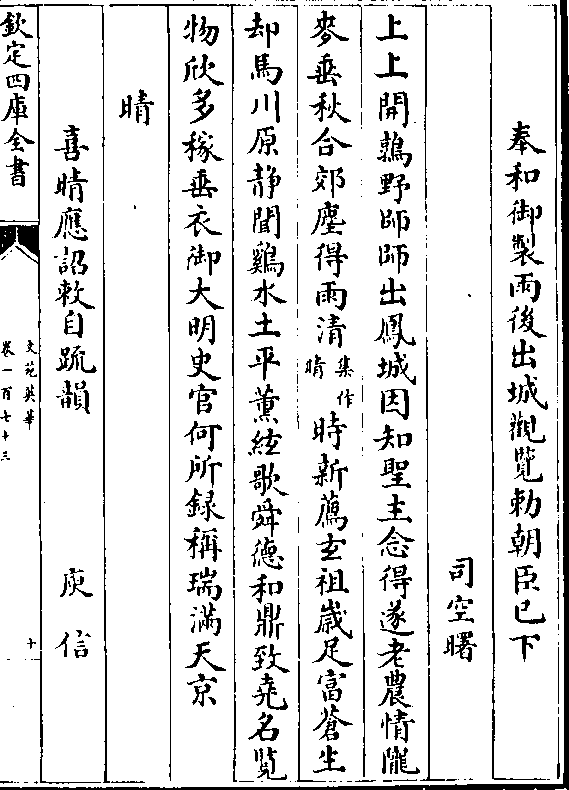 奉和御製雨後出城觀覽勅朝臣已下
司空曙
上上開鶉野師師出鳳城因知聖主念得遂老農情隴
麥垂秋合郊塵得雨清集作晴時新薦玄祖歲足富蒼生
却馬川原靜聞雞水土平薰絃歌舜德和鼎致堯名覽
物欣多稼垂衣御大明史官何所録稱瑞滿天京
晴
喜晴應詔敕自疏韻
庾信
欽定四庫全書
文苑英華
卷一百七十三
十